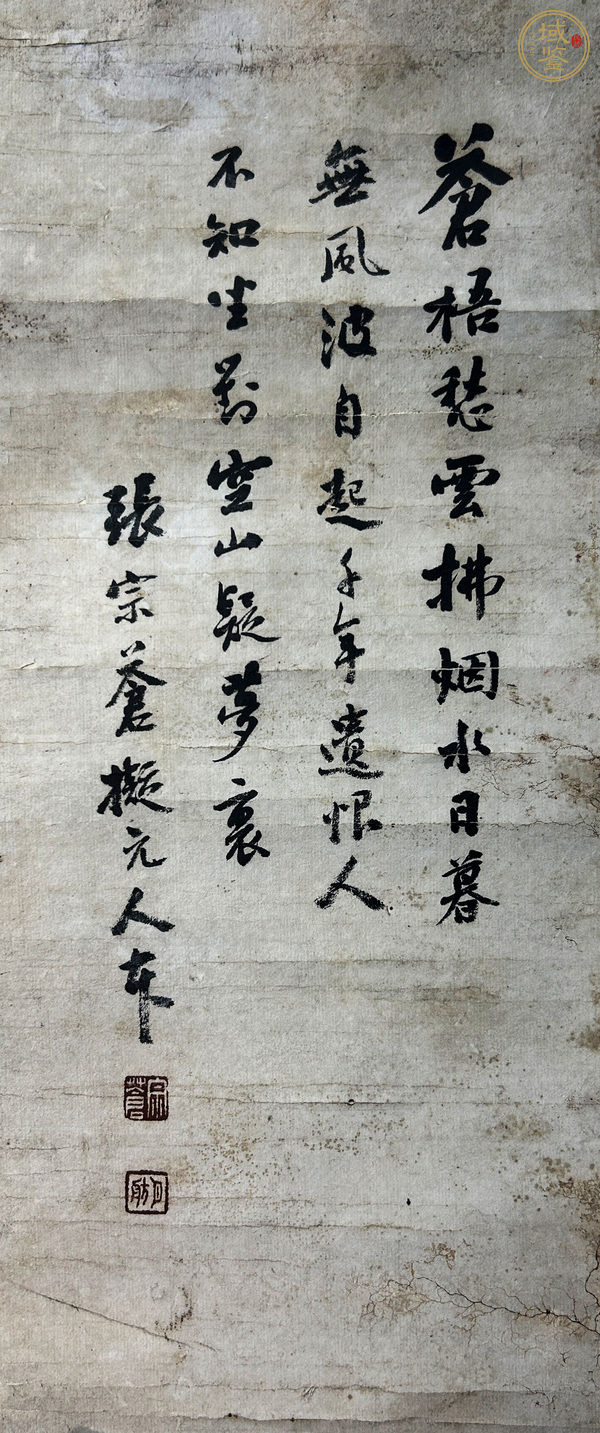 蒼梧愁雲拂烟水日暮
無風波自起千年遺恨人
不知坐對空山疑夢裏
張宗蒼擬元人本
宗蒼
域鑒